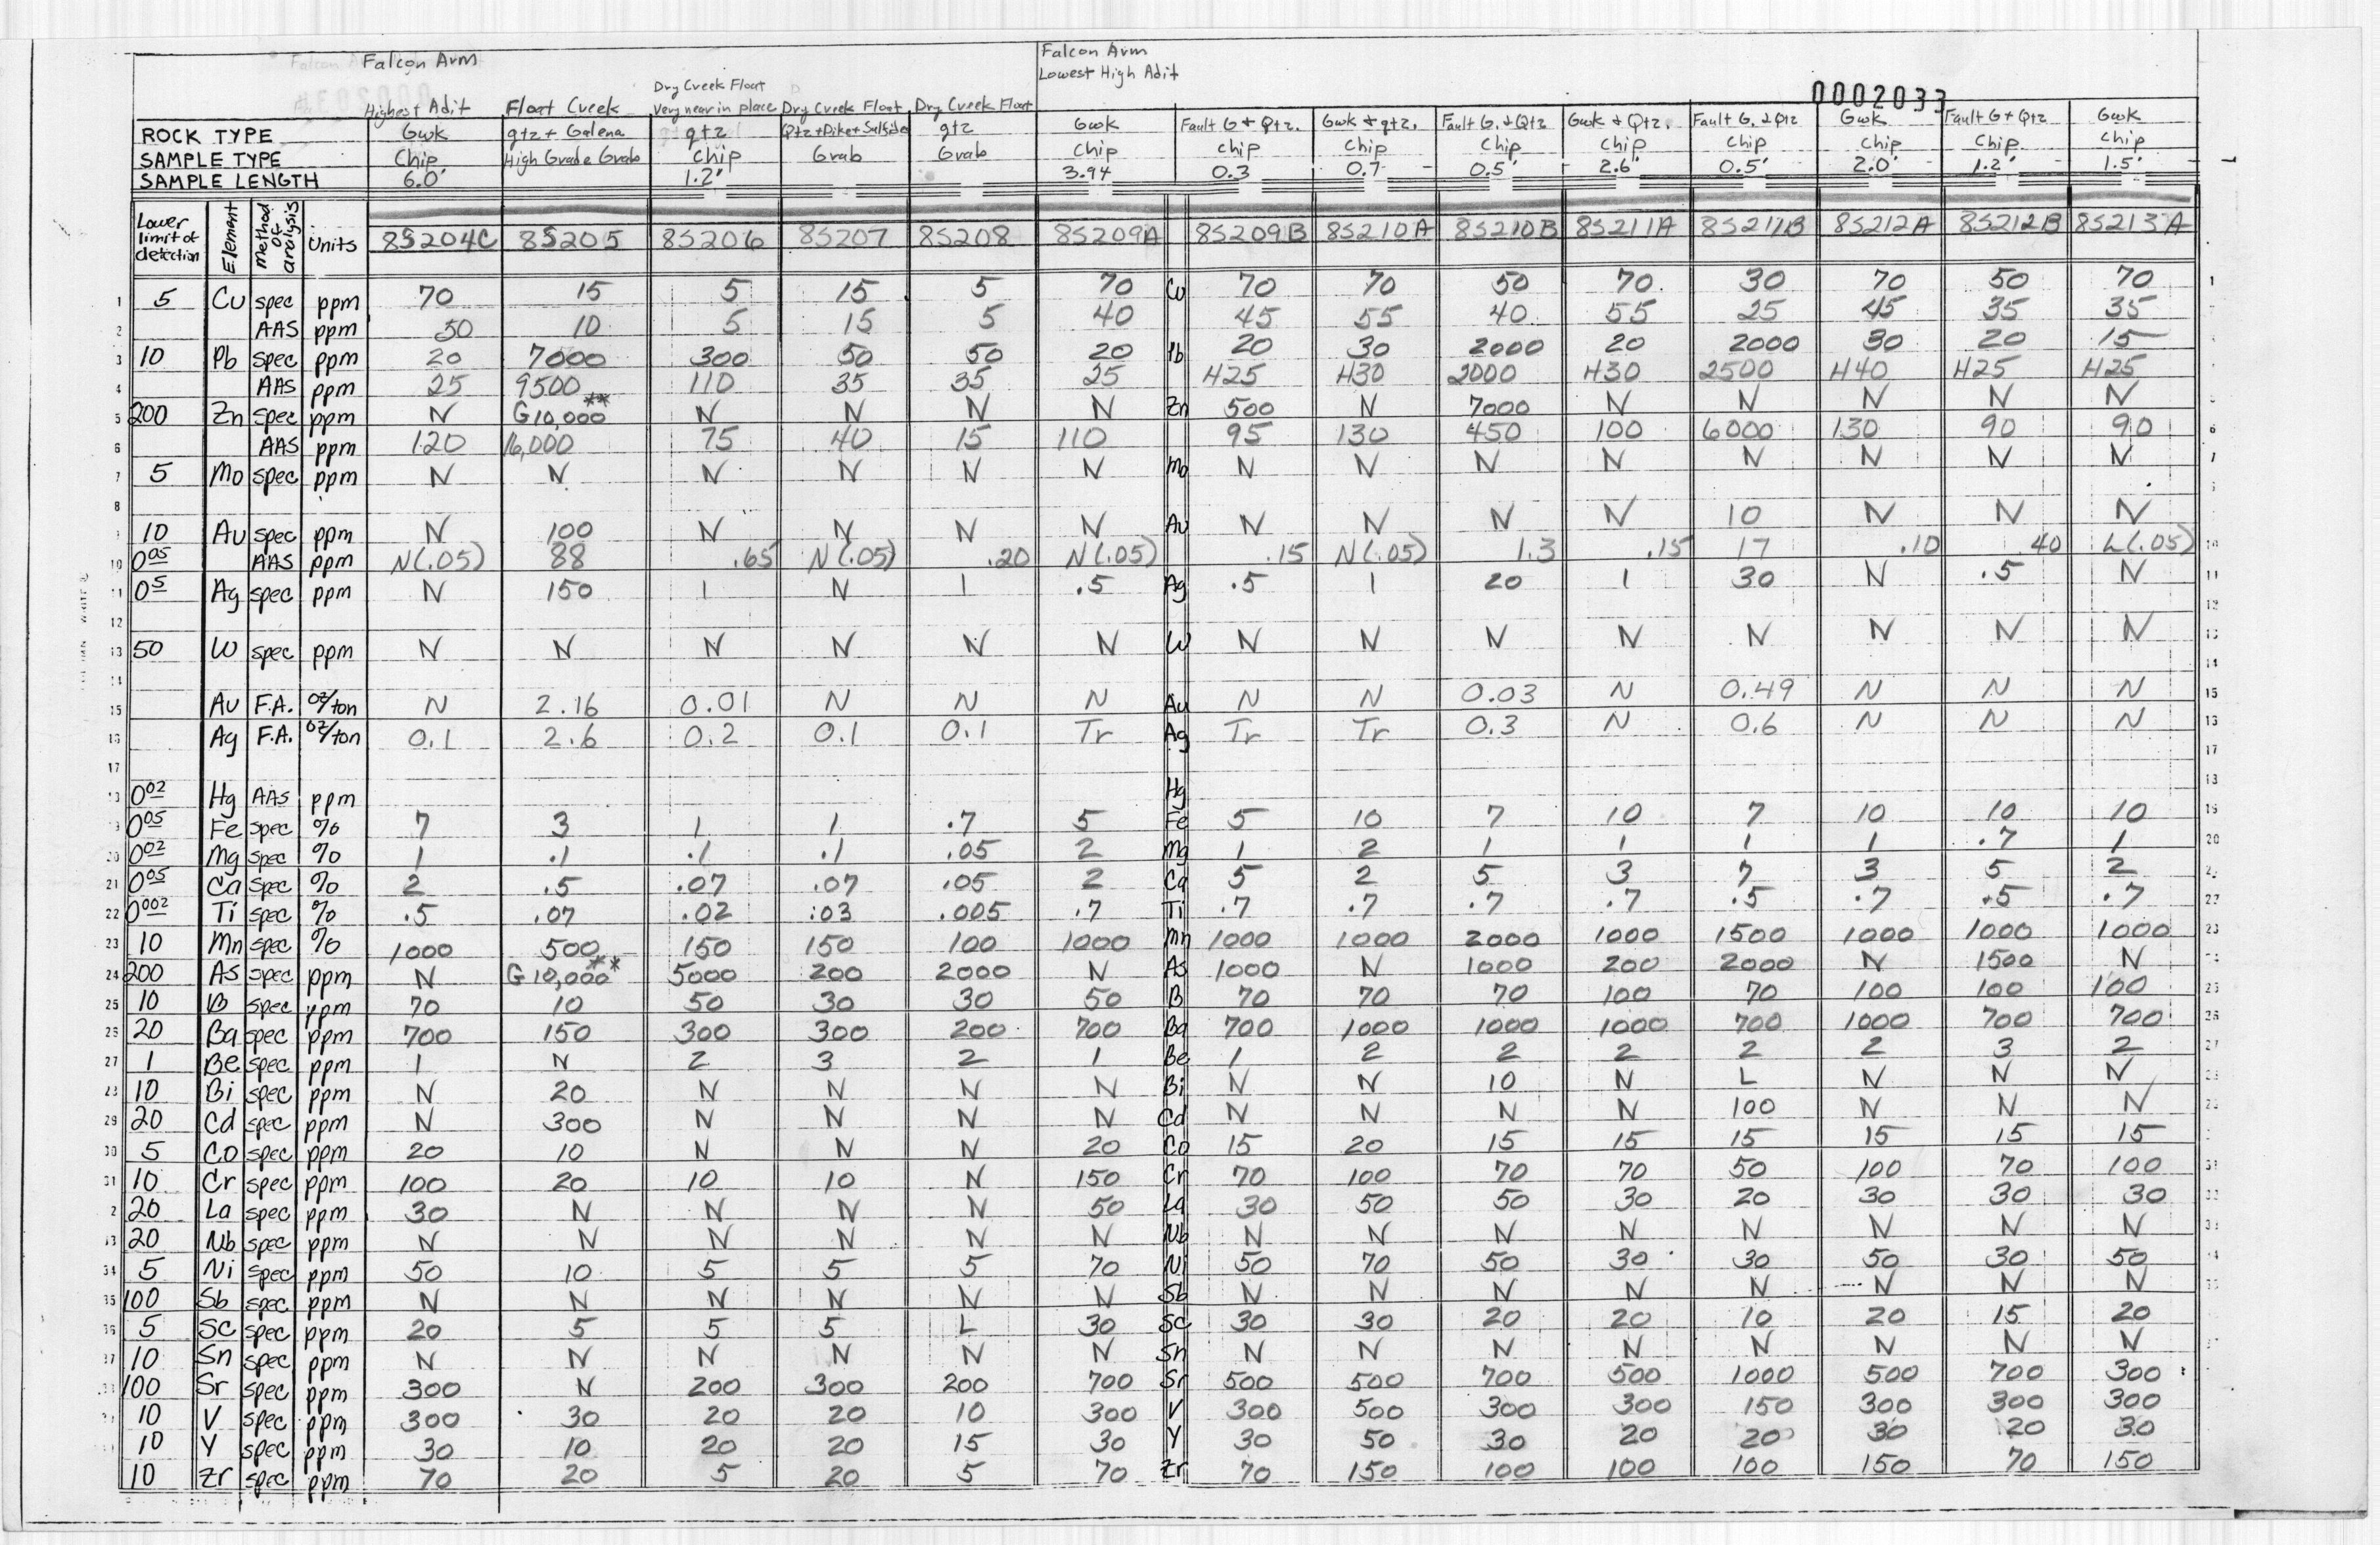 Falcon Arm
Falcon Arm
Lowest High Adit
0002033
Highest Adit Float Creek Dry Creek Float Very near in place Dry Creek Float Dry Creek Float
ROCK TYPE Gwk qtz + Galena qtz Qtz+Dike+Sulfide qtz Gwk Fault G + Qtz. Gwk + qtz. Fault G. + Qtz Gwk + Qtz. Fault G. + Qtz Gwk Fault G + Qtz Gwk
SAMPLE TYPE Chip High Grade Grab Chip Grab Grab Chip Chip Chip Chip Chip Chip Chip Chip Chip
SAMPLE LENGTH 6.0' 1.2' 3.94 0.3 0.7 0.5' 2.6' 0.5' 2.0' 1.2' 1.5'
Lower limit of detection Element Method of analysis Units 8S204C 8S205 8S206 8S207 8S208 8S209A 8S209B 8S210A 8S210B 8S211A 8S211B 8S212A 8S212B 8S213A
1 5 Cu spec ppm 70 15 5 15 5 70 Cu 70 70 50 70 30 70 50 70 1
2 AAS ppm 50 10 5 15 5 40 45 55 40 55 25 45 35 35
3 10 Pb spec ppm 20 7000 300 50 50 20 Pb 20 30 2000 20 2000 30 20 15
4 AAS ppm 25 9500 110 35 35 25 H25 H30 2000 H30 2500 H40 H25 H25
5 200 Zn spec ppm N G10,000** N N N N Zn 500 N 7000 N N N N N
6 AAS ppm 120 16,000 75 40 15 110 95 130 450 100 6000 130 90 90 6
7 5 Mo spec ppm N N N N N N Mo N N N N N N N N
8
9 10 Au spec ppm N 100 N N N N Au N N N N 10 N N N
10 0.05 AAS ppm N(.05) 88 .65 N(.05) .20 N(.05) .15 N(.05) 1.3 .15 17 .10 .40 L(.05) 10
11 0.5 Ag spec ppm N 150 1 N 1 .5 Ag .5 1 20 1 30 N .5 N 11
12 12
13 50 W spec ppm N N N N N N W N N N N N N N N 13
14 14
15 Au F.A. oz/ton N 2.16 0.01 N N N Au N N 0.03 N 0.49 N N N 15
16 Ag F.A. oz/ton 0.1 2.6 0.2 0.1 0.1 Tr Ag Tr Tr 0.3 N 0.6 N N N 16
17 17
18 0.02 Hg AAS ppm Hg 18
19 0.05 Fe spec % 7 3 1 1 .7 5 Fe 5 10 7 10 7 10 10 10 19
20 0.02 Mg spec % 1 .1 .1 .1 .05 2 Mg 1 2 1 1 1 1 .7 1 20
21 0.05 Ca spec % 2 .5 .07 .07 .05 2 Ca 5 2 5 3 7 3 5 2
22 0.002 Ti spec % .5 .07 .02 .03 .005 .7 Ti .7 .7 .7 .7 .5 .7 .5 .7 22
23 10 Mn spec % 1000 500 150 150 100 1000 Mn 1000 1000 2000 1000 1500 1000 1000 1000 23
24 200 As spec ppm N G10,000** 5000 200 2000 N As 1000 N 1000 200 2000 N 1500 N
25 10 B spec ppm 70 10 50 30 30 50 B 70 70 70 100 70 100 100 100 25
26 20 Ba spec ppm 700 150 300 300 200 700 Ba 700 1000 1000 1000 700 1000 700 700 26
27 1 Be spec ppm 1 N 2 3 2 1 Be 1 2 2 2 2 2 3 2 27
28 10 Bi spec ppm N 20 N N N N Bi N N 10 N L N N N
29 20 Cd spec ppm N 300 N N N N Cd N N N N 100 N N N
30 5 Co spec ppm 20 10 N N N 20 Co 15 20 15 15 15 15 15 15
31 10 Cr spec ppm 100 20 10 10 N 150 Cr 70 100 70 70 50 100 70 100 31
2 20 La spec ppm 30 N N N N 50 La 30 50 50 30 20 30 30 30 32
33 20 Nb spec ppm N N N N N N Nb N N N N N N N N
34 5 Ni spec ppm 50 10 5 5 5 70 Ni 50 70 50 30 30 50 30 50
35 100 Sb spec ppm N N N N N N Sb N N N N N N N N
36 5 Sc spec ppm 20 5 5 5 L 30 Sc 30 30 20 20 10 20 15 20
37 10 Sn spec ppm N N N N N N Sn N N N N N N N N
38 100 Sr spec ppm 300 N 200 300 200 700 Sr 500 500 700 500 1000 500 700 300
10 V spec ppm 300 30 20 20 10 300 V 300 500 300 300 150 300 300 300
10 Y spec ppm 30 10 20 20 15 30 Y 30 50 30 20 20 30 20 30
10 Zr spec ppm 70 20 5 20 5 70 Zr 70 150 100 100 100 150 70 150